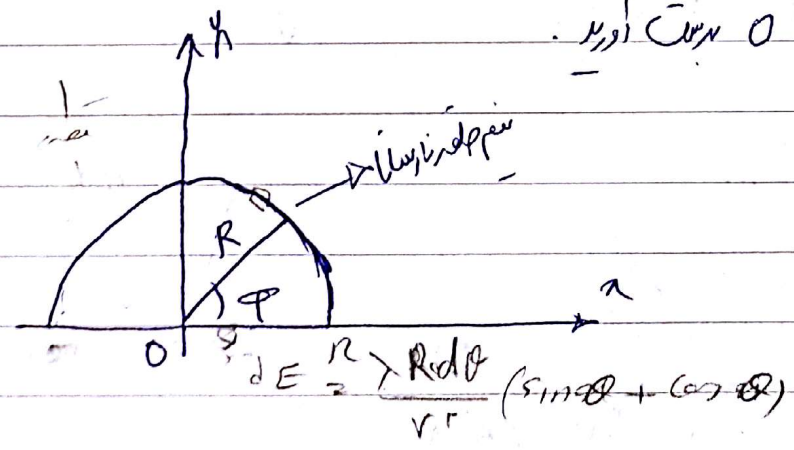 O بدست آورید.
y
نیم حلقه نارسانا
R
φ
x
O
R
dE = λRdθ / r² (sinθ + cosθ)